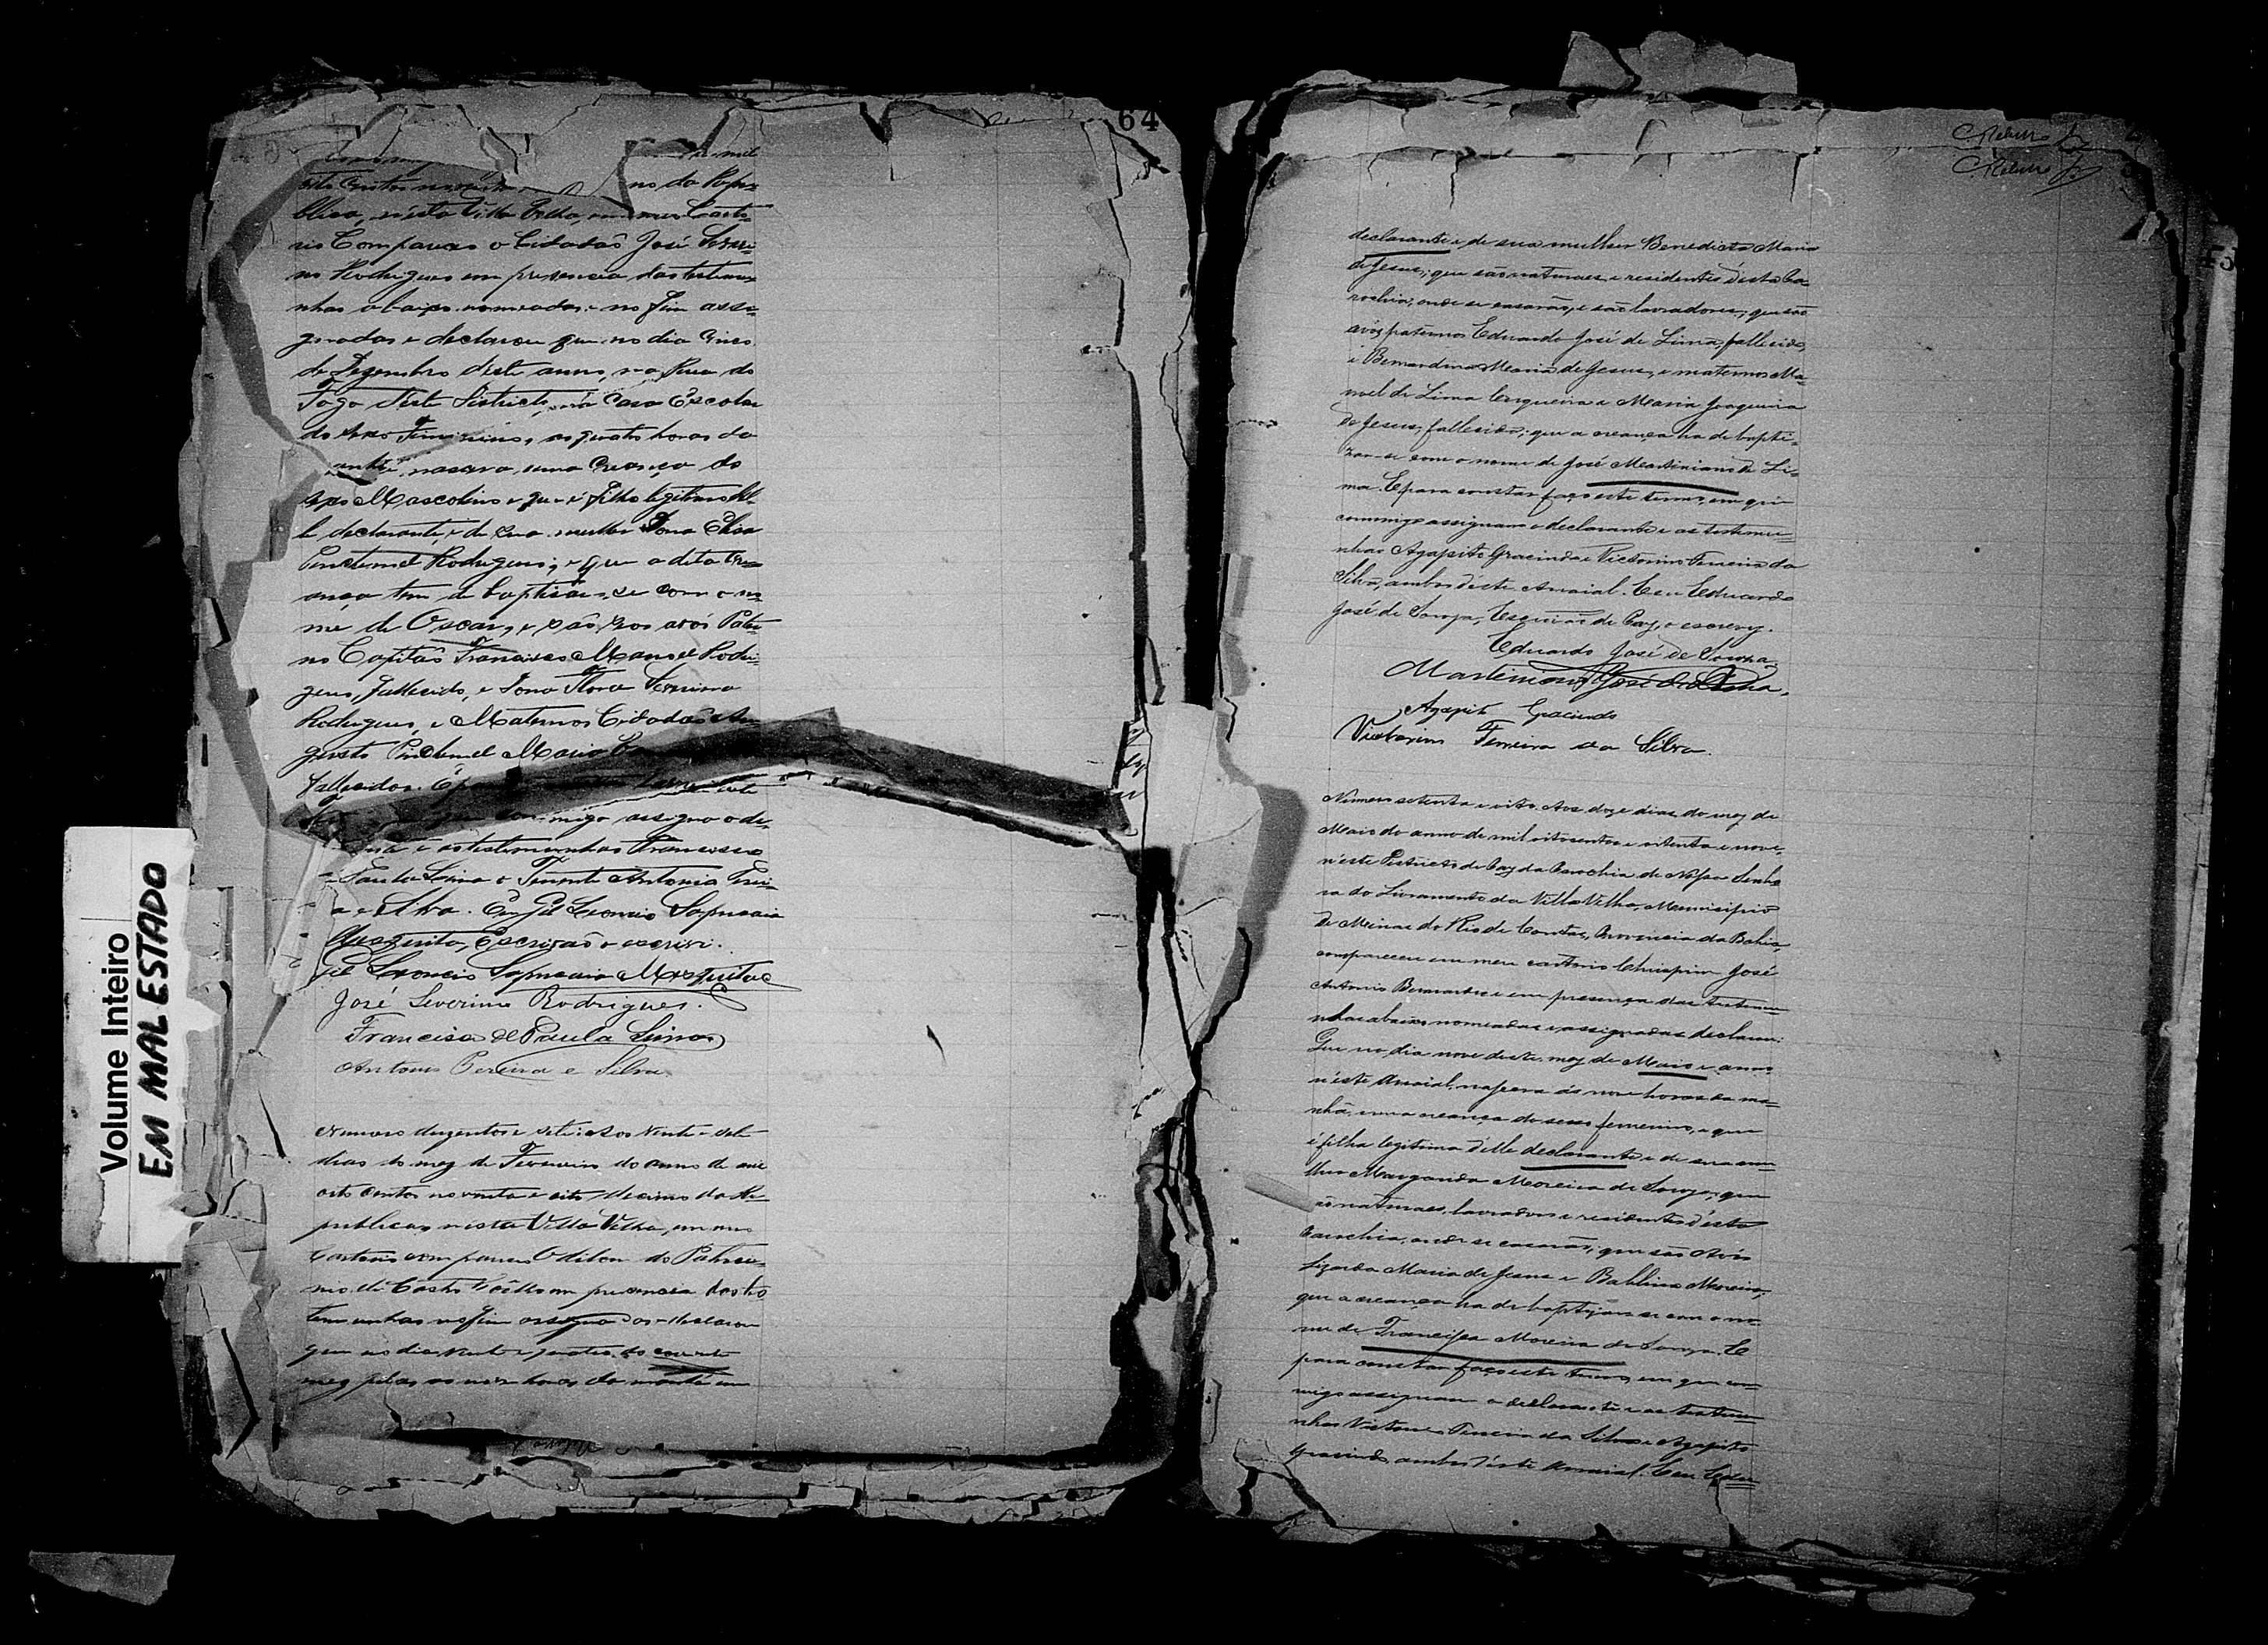 64
mil
oito centos no da Repu
blica, nésta Villa Velha, em meu Carto-
rio Compareceo o Cidadaõ José Severi-
no Rodrigues em presencia das testemu-
nhas abaixo nomeadas e no fim assi-
gnadas e declarou que no dia Cinco
de Dezembro deste anno, na Rua do
Fogo d'este Districto, na Casa Escolar
do sexo Feminino, as quatro horas da
nasceo, uma Creança do
sexo Mascolino e que é filho legitimo del-
le declarante, e de sua mulher Dona Elisa
Rodrigues, e que a dita Cre-
ança tem de baptisar-se com o no-
me de Oscar, e saõ seos avós Pater-
no Capitaõ Francisco Manoel Rodri-
gues, fallecido, e Dona Flora Severina
Rodrigues, e Maternos Cidadaõ Au-
gusto Maria
Fallecidos. E
comigo assigno o de-
e as testemunhas Francisco
Paula Lima e Tenente Antonio Perei-
a e Silva. Eu Gil Leoncio Sapucaia
Mesquita, Escrivaõ o escrivi.
Gil Leoncio Sapucaia Mesquita
José Severino Rodrigues.
Francisco de Paula Lima
Antonio Pereira e Silva
Numero duzentos e sete: Aos vinte e sete
dias do mez de Fevereiro do anno de mil
oito centos noventa e oito, decimo da Re-
publica, nesta Villa Velha, em meu
Cartorio compareceu Odilon do Patroci-
nio de Castro em presencia das tes-
temunhas no fim assignados e declarou
que no dia vinte e quatro do corrente
mez pelas horas da
declarante e de sua mulher Benedicta Maria
de Jesus; que são naturaes e residentes d'esta Pa-
rochia, onde se casarão, e são lavradores; que são
avós paternos Eduardo José de Lima, fallecido,
e Bernardina Maria de Jesus, e maternos Ma-
noel de Lima Cerqueira e Maria Joaquina
de Jesus, fallecida; que a creança ha de bapti-
zar-se com o nome de José Martiniano de Li-
ma. E para constar faço este termo, em que
commigo assignam o declarante e as testemu-
nhas Agapito Gracindo e Victorino Ferreira da
Silva, ambos d'este Arraial. Eu Eduardo
José de Souza, Escrivão de Paz, o escrevy.
Eduardo José de Souza
Martiniano José de Lima.
Agapito Gracindo
Victorino Ferreira da Silva.
Numero setenta e oito. Aos doze dias do mez de
Maio do anno de mil oitocentos e oitenta e nove,
n'este Districto de Paz da Parochia de Nossa Senho
ra do Livramento da Villa Velha, Municipio
de Minas do Rio de Contas, Provincia da Bahia,
compareceu em meu cartorio Chrispim José
Antonio e em presença das testemu-
nhas abaixo nomeadas e assignadas declarou:
Que no dia nove deste mez de Maio e anno
n'este Arraial, nascera ás nove horas da ma-
nhã, uma creança do sexo femenino, e que
é filha legitima d'elle declarante e de sua mu-
lher Margarida Moreira de Souza; que
são naturaes, lavradores e residentes d'esta
Parochia, onde se casarão, que são Avós
Maria de Jesus e Balbina Moreira,
que a creança ha de baptizar-se com o no-
me de Francisca Moreira de Souza. E
para constar faço este termo, em que com-
migo assignam o declarante e as testemu-
nhas Victorino Ferreira da Silva e Agapito
Gracindo, ambos d'este Arraial. Eu Edu-
Volume Inteiro
EM MAL ESTADO